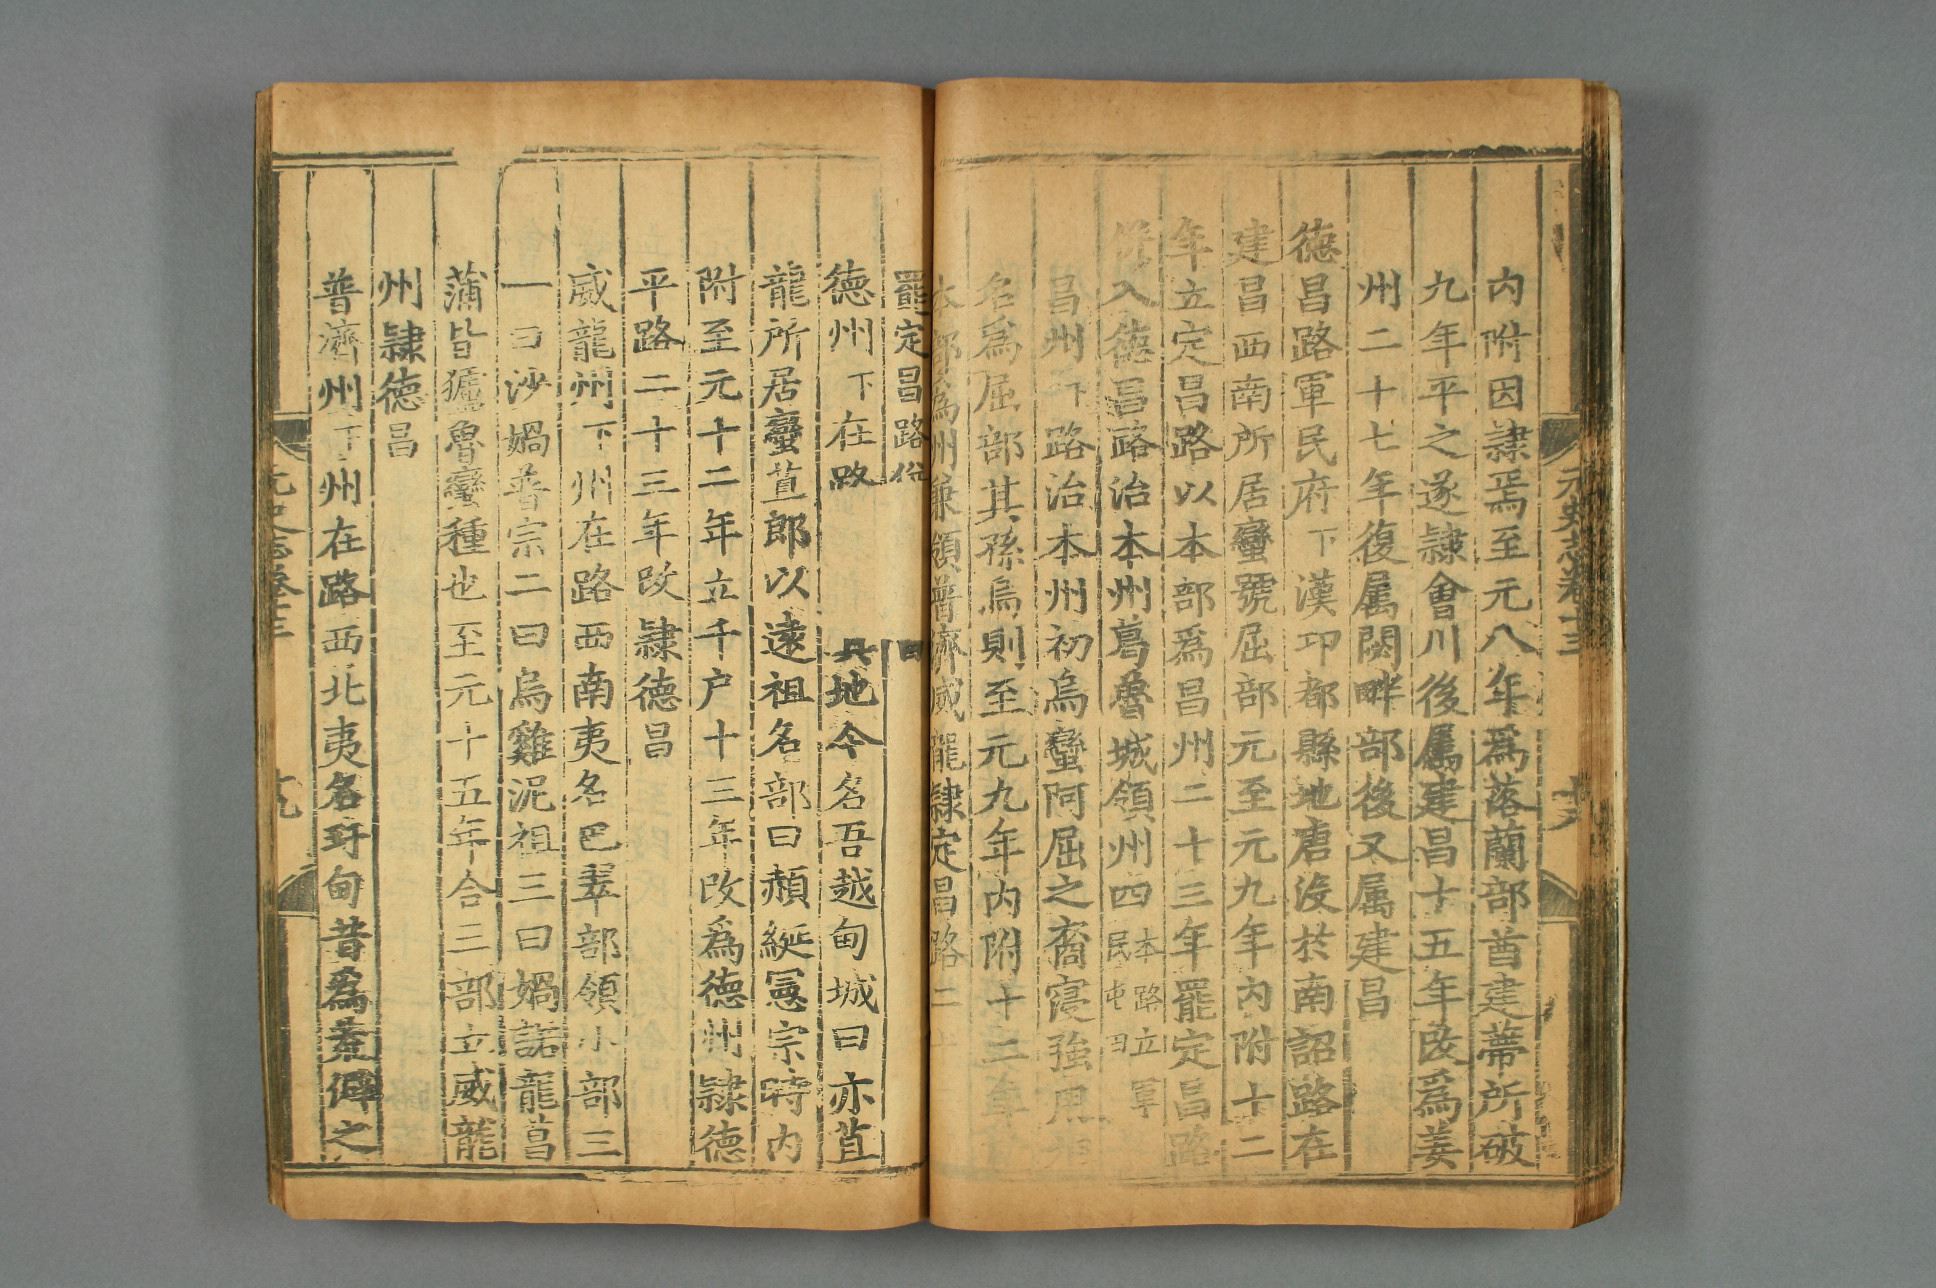 元史志卷十三
十八
内附因隷焉至元八年爲落蘭部酋建蒂所破
九年平之遂隷會川後属建昌十五年改爲姜
州二十七年復属閟畔部後又属建昌
德昌路軍民府下漢卭都縣地唐没於南詔路在
建昌西南所居蠻號屈部元至元九年内附十二
年立定昌路以本部爲昌州二十三年罷定昌路
併入德昌路治本州葛魯城領州四本路立軍
民屯田
昌州下路治本州初烏蠻阿屈之裔寖强用
名爲屈部其孫烏則至元九年内附十二年
本部爲州兼領普濟威龍隷定昌路二
罷定昌路併
德州下在路
地今名吾越甸城曰亦苴
龍所居蠻苴郎以遠祖名部曰頳綖憲宗時内
附至元十二年立千户十三年改爲德州隷德
平路二十三年改隷德昌
威龍州下州在路西南夷名巴翠部領小部三
一曰沙媧普宗二曰烏雞泥祖三曰媧諾龍菖
蒲皆玀魯蠻種也至元十五年合三部立威龍
州隷德昌
普濟州下州在路西北夷名玗甸昔爲荒僻之
元史志卷十三
十九